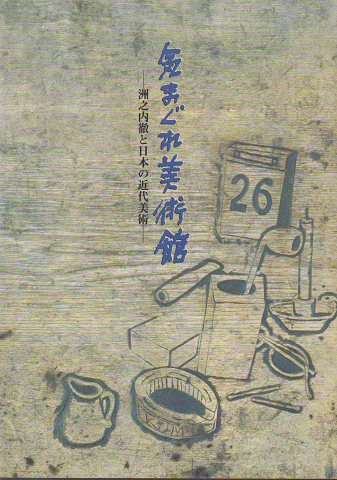 気まぐれ美術館
―洲之内徹と日本の近代美術―
26